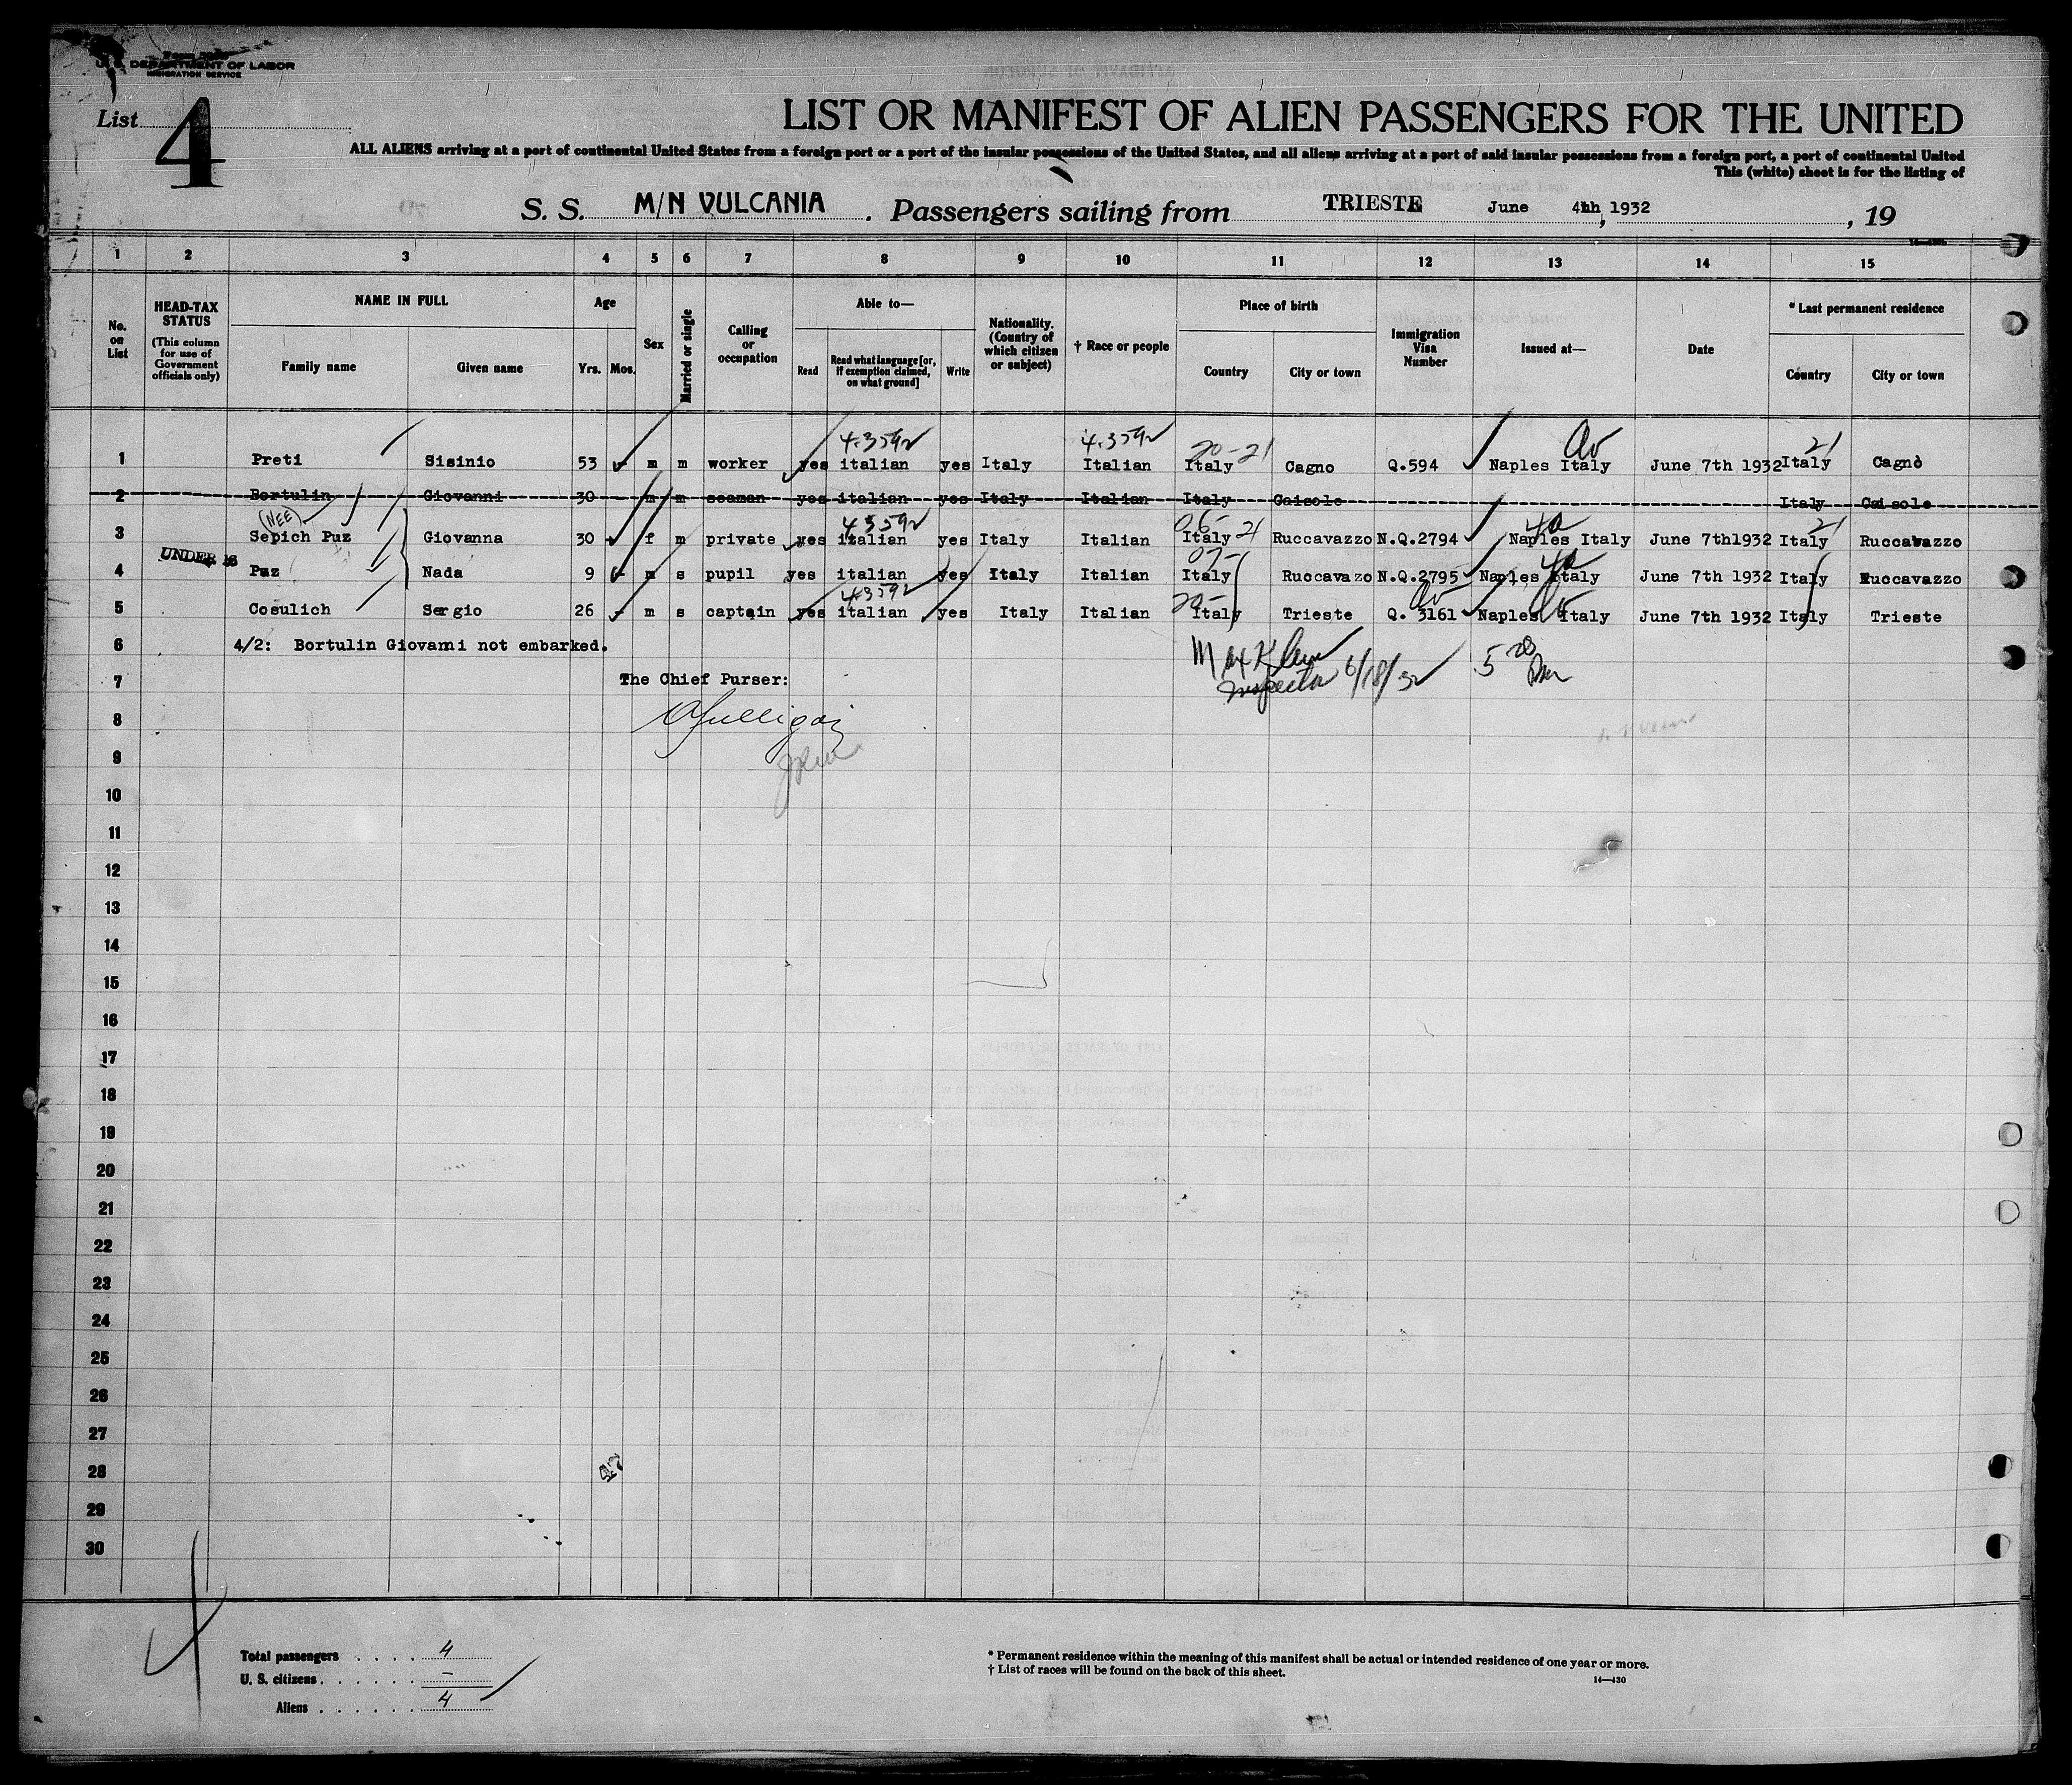 U. S. DEPARTMENT OF LABOR
IMMIGRATION SERVICE
List 4
LIST OR MANIFEST OF ALIEN PASSENGERS FOR THE UNITED
ALL ALIENS arriving at a port of continental United States from a foreign port or a port of the insular possessions of the United States, and all aliens arriving at a port of said insular possessions from a foreign port, a port of continental United
This (white) sheet is for the listing of
S. S. M/N VULCANIA . Passengers sailing from TRIESTE June 4th, 1932 , 19
1 2 3 4 5 6 7 8 9 10 11 12 13 14 15
No. on List
HEAD-TAX STATUS (This column for use of Government officials only)
NAME IN FULL
Family name Given name
Age
Yrs. Mos.
Sex
Married or single
Calling or occupation
Able to—
Read Read what language [or, if exemption claimed, on what ground] Write
Nationality. (Country of which citizen or subject)
† Race or people
Place of birth
Country City or town
Immigration Visa Number
Issued at—
Date
* Last permanent residence
Country City or town
4-3592 4-3592 20-21 21
1 Preti Sisinio 53 m m worker yes italian yes Italy Italian Italy Cagno Q.594 Naples Italy June 7th 1932 Italy Cagnò
2 Bortulin Giovanni 30 m m seaman yes italian yes Italy Italian Italy Gaisole Italy Caisole
(NEE) 43592 06-21 4a 21
3 Sepich Puz Giovanna 30 f m private yes italian yes Italy Italian Italy Ruccavazzo N.Q.2794 Naples Italy June 7th1932 Italy Ruccavazzo
UNDER 16 07- 4a
4 Puz Nada 9 m s pupil yes italian yes Italy Italian Italy Ruccavazo N.Q.2795 Naples Italy June 7th 1932 Italy Ruccavazzo
43592 20-
5 Cosulich Sergio 26 m s captain yes italian yes Italy Italian Italy Trieste Q. 3161 Naples Italy June 7th 1932 Italy Trieste
6 4/2: Bortulin Giovanni not embarked.
Max Klein
Inspector 6/18/32
7 The Chief Purser:
8
9
10
11
12
13
14
15
16
17
18
19
20
21
22
23
24
25
26
27
28
29
30
47
Total passengers . . . . 4
U. S. citizens . . . . . . —
Aliens . . . . . . 4
* Permanent residence within the meaning of this manifest shall be actual or intended residence of one year or more.
† List of races will be found on the back of this sheet.
14—430